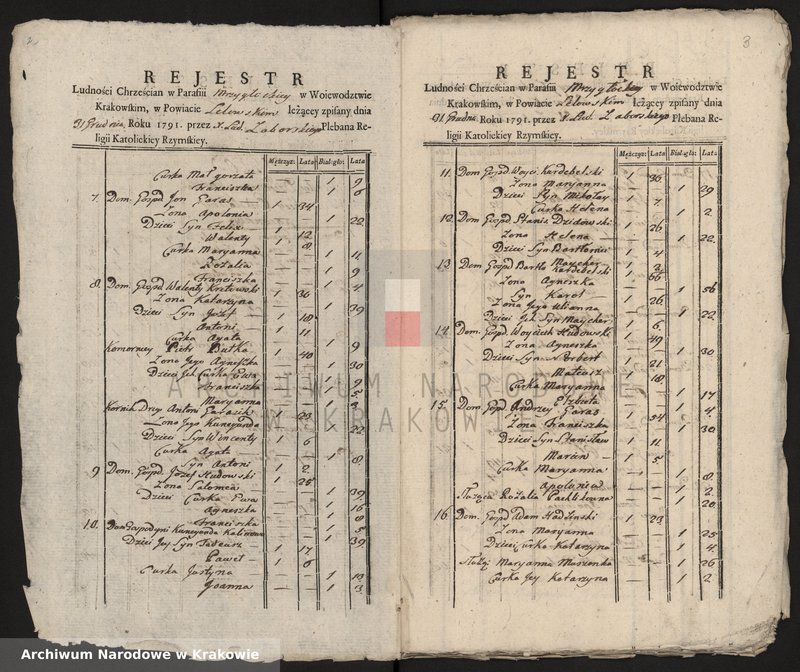 2
REJESTR
Ludności Chrześcian w Parafii Mrzygłodzkiey w Woiewodztwie
Krakowskim, w Powiecie Lelowskim leżącey zpisany dnia
31 Grudnia Roku 1791. przez X. Lud. Zaborskiego Plebana Re-
ligii Katolickiey Rzymskiey.
Mężczyz: Lata Białogło: Lata
Curka Małgorzata — — 1 9
Franciszka — — 1 6
7. Dom. Gospd Jon Garas — 1 34
Zona Apolonia — — 1 22
Dzieci Syn Felix — 1 12
Walenty — 1 8
Curka Maryanna — — 1 11
Rozalia — — 1 9
Franciszka — — 1 4
8. Dom. Gospd Walenty 1 36
Zona Katarzyna — — 1 39
Dzieci Syn Jozef — 1 18
Antoni — 1 11
Curka Agata — — 1 9
Komorncy Piotr Dutka 1 40
Zona Jego Agnieszka — — 1 30
Dzieci Ich Curka Ewa — — 1 9
Franciszka — — 1 5
Maryanna
Kornik Drugi Antoni Garasik 1 23
Zona Jego Kunegunda — — 1 22
Dzieci Syn Wincenty 1 6
Curka Agata — — — 1 8
Syn Antoni 1 2
9 Dom. Gospd. Jozef Hudowski 1 28
Zona Salomea — — 1 39
Dzieci Curka Ewa — — 1 16
Agneszka — — 1 8
Franciszka — — 1 5
10. Dom Gospodyni Kunegonda — — 1 39
Dzieci Jey Syn Tadeusz 1 17
Paweł — 1 6
Curka Justyna — — 1 13
Joanna — — 1 3
3
REJESTR
Ludności Chrześcian w Parafii Mrzygłodzkiey w Woiewodztwie
Krakowskim, w Powiecie Lelowskim leżącey zpisany dnia
31 Grudnia Roku 1791. przez X. Lud. Zaborskiego Plebana Re-
ligii Katolickiey Rzymskiey.
Mężczyz: Lata Białogło: Lata
11. Dom Gospd Woyci Kardebelski 1 36
Zona Maryanna — — 1 29
Dzieci Syn Mikołay 1 7
Curka Helena — — 1 2
12. Dom Gospd Stanis Dzidowski 1 26
Zona Helena — — — 1 22
Dzieci Syn Bartłomiei 1 4
13. Dom Gospd Bartło Kardebelski 1 66
Zona Agneszka — — 1 56
Syn Karol — 1 26
Zona Jego Julianna — — 1 22
Dzieci Ich Syn 1 6
14. Dom. Gospd. Woyciech Hudowski 1 49
Zona Agneszka — — 1 30
Dzieci Syn Norbert 1 21
Mateusz 1 18
Curka Maryanna — — 1 17
Elzbieta — — 1 4
15. Dom Gospd Andrzey Garas 1 54
Zona Franciszka — — 1 30
Dzieci Syn Stanisław 1 11
Marcin — 1 5
Curka Maryanna — — 1 8
Apolonia — — 1 2
Służąca Rozalia — — 1 20
16. Dom. Gospd Adam 1 23
Zona Maryanna — — 1 25
Dzieci Curka Katarzyna — — 1 4
Służą: Maryanna — — 1 26
Curka Jey Katarzyna — — 1 2
ARCHIWUM NARODOWE
W KRAKOWIE
Archiwum Narodowe w Krakowie